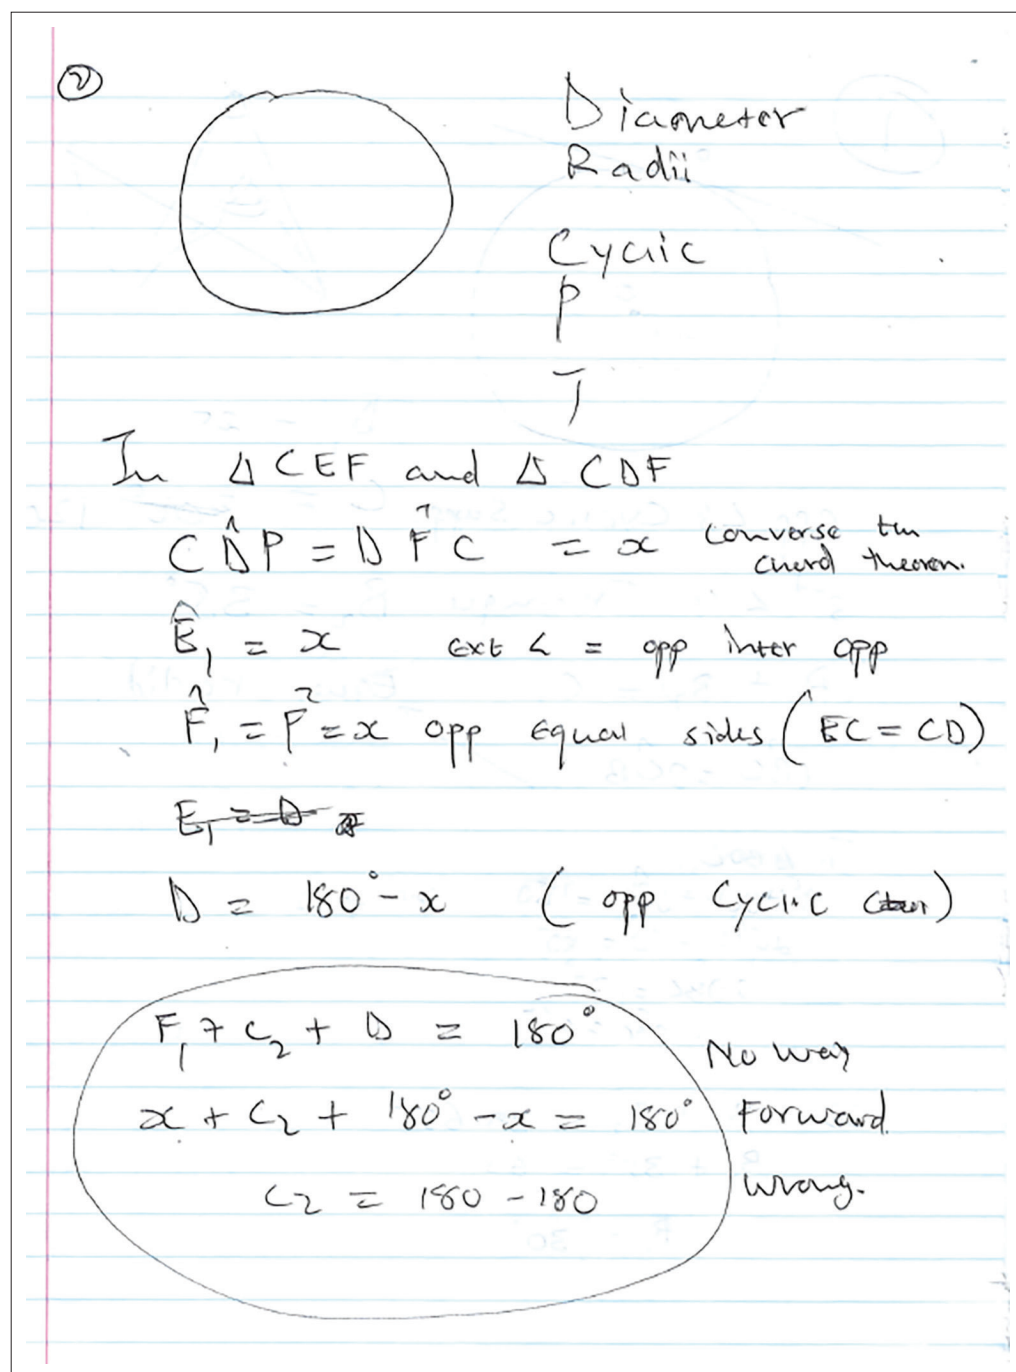 2
Diameter
Radii
Cyclic
P
T
In △ CEF and △ CDF
CD̂P = DF̂C = x converse tan
chord theorem.
Ê₁ = x ext < = opp inter opp
F̂₁ = F̂ = x opp equal sides (EC = CD)
E₁ = D
D = 180° - x (opp cyclic
F₁ + C₂ + D = 180°
x + C₂ + 180° - x = 180°
C₂ = 180 - 180
No way
Forward
wrong.